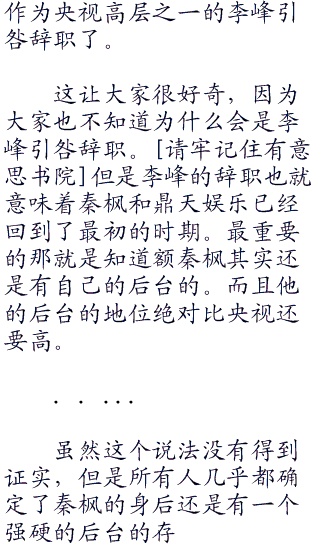 作为央视高层之一的李峰引
咎辞职了。
这让大家很好奇，因为
大家也不知道为什么会是李
峰引咎辞职。[请牢记住有意
思书院]但是李峰的辞职也就
意味着秦枫和鼎天娱乐已经
回到了最初的时期。最重要
的那就是知道额秦枫其实还
是有自己的后台的。而且他
的后台的地位绝对比央视还
要高。
. . ...
虽然这个说法没有得到
证实，但是所有人几乎都确
定了秦枫的身后还是有一个
强硬的后台的存